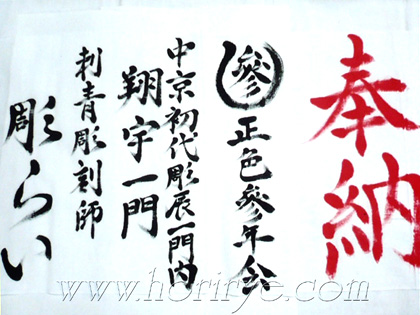 奉納
參
正色參年会
中京初代彫辰一門内
翔宇一門
刺青彫刻師
彫らい
www.horirye.com